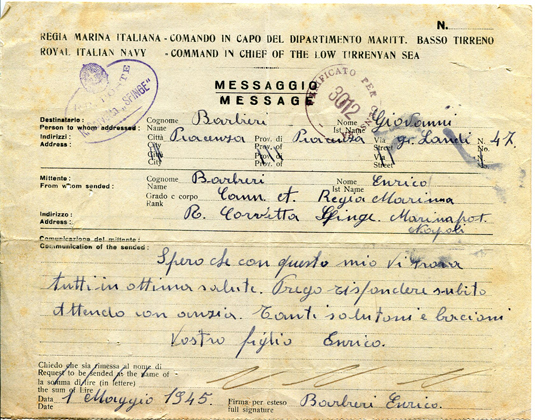 N.
REGIA MARINA ITALIANA - COMANDO IN CAPO DEL DIPARTIMENTO MARITT. BASSO TIRRENO
ROYAL ITALIAN NAVY - COMMAND IN CHIEF OF THE LOW TIRRENYAN SEA
POSTE
"SFINGE"
VERIFICATO PER
3072
MESSAGGIO
MESSAGE
Destinatario: Cognome Barbieri Nome Giovanni
Person to whom addressed: Name Ist Name
Indirizzi: Città Piacenza Prov. di Piacenza Via G. Landi N. 47.
Address: City Prov. of St. No.
Mittente: Cognome Barbieri Nome Enrico
From whom sended: Name Ist Name
Grado e corpo Cann. et. Regia Marina
Rank
Indirizzo: R. Corvetta Sfinge. Marinapost.
Address: Napoli
Comunicazione del mittente:
Communication of the sended:
Spero che con questo mio Vi trova
tutti in ottima salute. Prego rispondere subito
attendo con ansia. Tanti saluti e bacioni
Vostro figlio Enrico.
Chiedo che sia rimessa al nome di
Request to be sended as the name of -
la somma di lire (in lettere)
the sum of Lire
Data 1 Maggio 1945. Firma per esteso Barbieri Enrico.
Date full signature